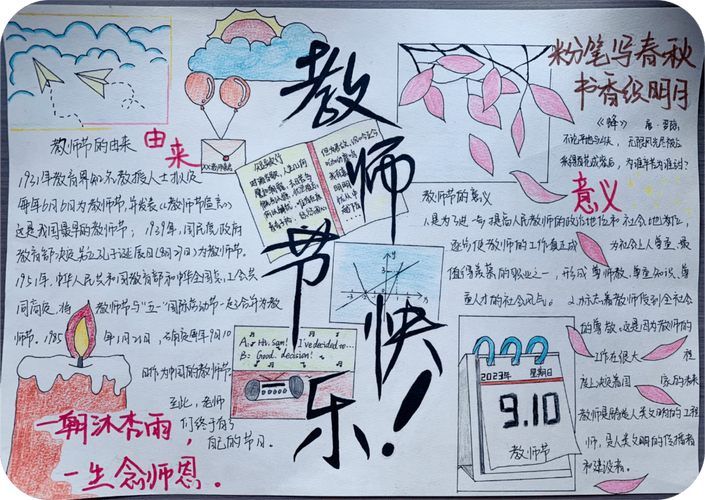 教师节快乐!
粉笔写春秋
书香织明月
教师节的由来
由来
1931年教育界知名教授人士拟定
每年6月6日为教师节,并发表《教师节宣言》
这是我国最早的教师节;1939年,国民党政府
教育部决定另立孔子诞辰日(8月27日)为教师节。
1951年,中华人民共和国教育部和中华全国总工会共
同商定,将教师节与“五一”国际劳动节一起合并为教
师节。1985年1月21日,确定每年9月10
日作为中国的教师节
至此,老师
们终于有
自己的节日。
一朝沐杏雨,
一生念师恩。
A: Hi, Sam! I've decided to...
B: Good decision!
《蜂》 唐·罗隐
不论平地与山尖,无限风光尽被占
采得百花成蜜后,为谁辛苦为谁甜?
教师节的意义
意义
1.是为了进一步提高人民教师的政治地位和社会地位,
还为使教师的工作真正成为社会上人尊重、最
值得羡慕的职业之一,形成尊师教、尊重知识、尊
重人才的社会风气。2.标志着教师受到全社会
的尊敬。这是因为教师的
工作在很大程
度上决定着国家的未来
教师是人类文明的工程
师,是人类文明的传播者
和建设者。
2023年 星期日
9.10
教师节